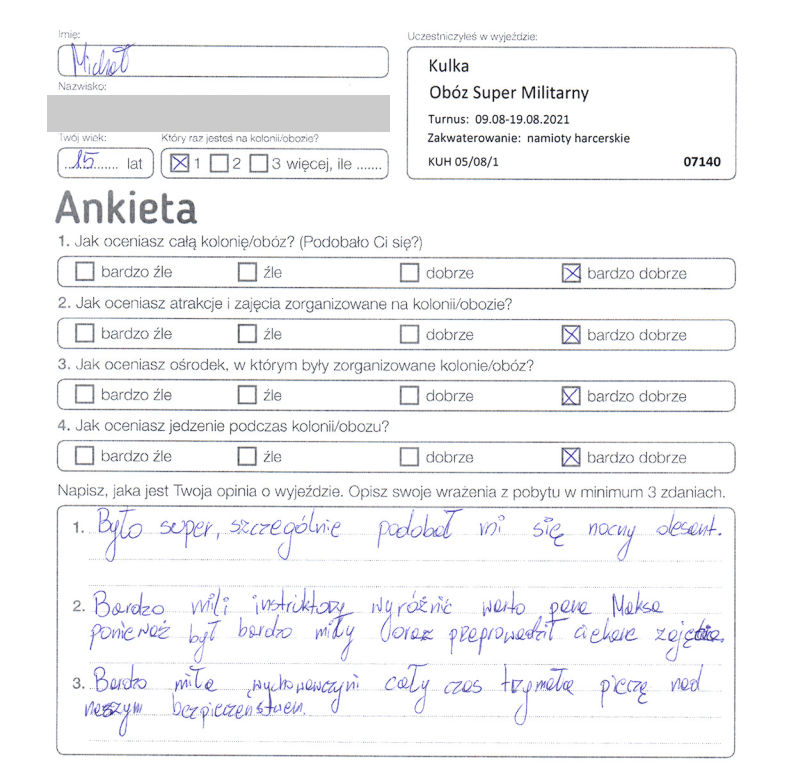 Imię:
Michał
Nazwisko:
Twój wiek:
15 lat
Który raz jesteś na kolonii/obozie?
1 2 3 więcej, ile .......
Uczestniczyłeś w wyjeździe:
Kulka
Obóz Super Militarny
Turnus: 09.08-19.08.2021
Zakwaterowanie: namioty harcerskie
KUH 05/08/1 07140
Ankieta
1. Jak oceniasz całą kolonię/obóz? (Podobało Ci się?)
bardzo źle źle dobrze bardzo dobrze
2. Jak oceniasz atrakcje i zajęcia zorganizowane na kolonii/obozie?
bardzo źle źle dobrze bardzo dobrze
3. Jak oceniasz ośrodek, w którym były zorganizowane kolonie/obóz?
bardzo źle źle dobrze bardzo dobrze
4. Jak oceniasz jedzenie podczas kolonii/obozu?
bardzo źle źle dobrze bardzo dobrze
Napisz, jaka jest Twoja opinia o wyjeździe. Opisz swoje wrażenia z pobytu w minimum 3 zdaniach.
1. Było super, szczególnie podobał mi się nocny desant.
2. Bardzo mili instruktorzy wyróżnić warto pana Maksa
ponieważ był bardzo miły oraz przeprowadził ciekawe zajęcia.
3. Bardzo miła wychowawczyni cały czas trzymała pieczę nad
naszym bezpieczeństwem.